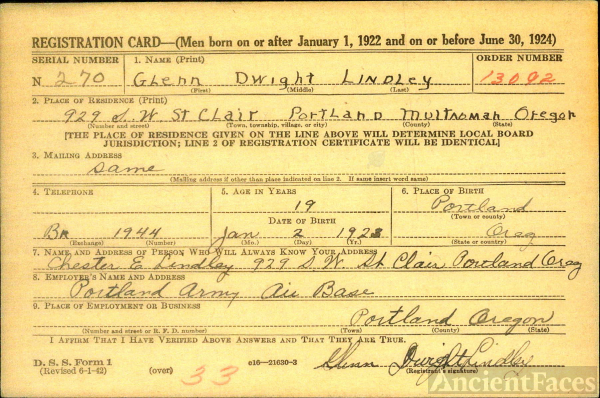 REGISTRATION CARD—(Men born on or after January 1, 1922 and on or before June 30, 1924)
SERIAL NUMBER 1. NAME (Print) ORDER NUMBER
N 270 GLENN DWIGHT LINDLEY 13092
(First) (Middle) (Last)
2. PLACE OF RESIDENCE (Print)
929 S.W. St Clair Portland Multnomah Oregon
(Number and street) (Town, township, village, or city) (County) (State)
[THE PLACE OF RESIDENCE GIVEN ON THE LINE ABOVE WILL DETERMINE LOCAL BOARD
JURISDICTION; LINE 2 OF REGISTRATION CERTIFICATE WILL BE IDENTICAL]
3. MAILING ADDRESS
Same
(Mailing address if other than place indicated on line 2. If same insert word same)
4. TELEPHONE 5. AGE IN YEARS 6. PLACE OF BIRTH
19 Portland
DATE OF BIRTH (Town or county)
BR 1944 Jan 2 1923 Oreg
(Exchange) (Number) (Mo.) (Day) (Yr.) (State or country)
7. NAME AND ADDRESS OF PERSON WHO WILL ALWAYS KNOW YOUR ADDRESS
Chester E Lindley 929 S.W. St Clair Portland Oreg
8. EMPLOYER'S NAME AND ADDRESS
Portland Army Air Base
9. PLACE OF EMPLOYMENT OR BUSINESS
Portland Oregon
(Number and street or R. F. D. number) (Town) (County) (State)
I AFFIRM THAT I HAVE VERIFIED ABOVE ANSWERS AND THAT THEY ARE TRUE.
D. S. S. Form 1 e16—21630-3 Glenn Dwight Lindley
(Revised 6-1-42) (over) 33 (Registrant's signature)
AncientFaces